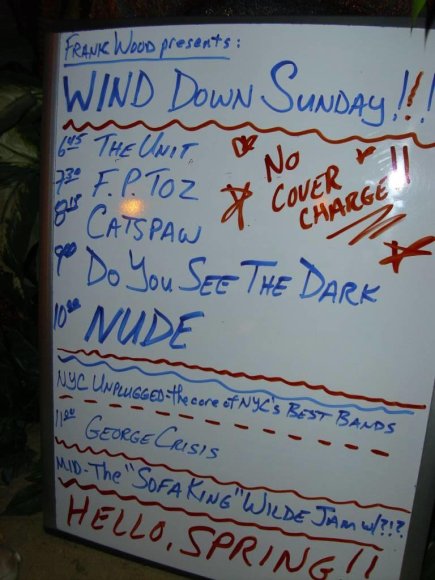 FRANK WOOD presents:
WIND DOWN SUNDAY!!!
6:45 THE UNIT
7:30 F.P. TOZ
8:15 CATSPAW
NO
COVER
CHARGE!!
9:00 DO YOU SEE THE DARK
10:00 NUDE
NYC UNPLUGGED-the core of NYC's BEST BANDS
11:00 GEORGE CRISIS
MID-The "SOFA KING" WILDE JAM w/?!?
HELLO, SPRING!!